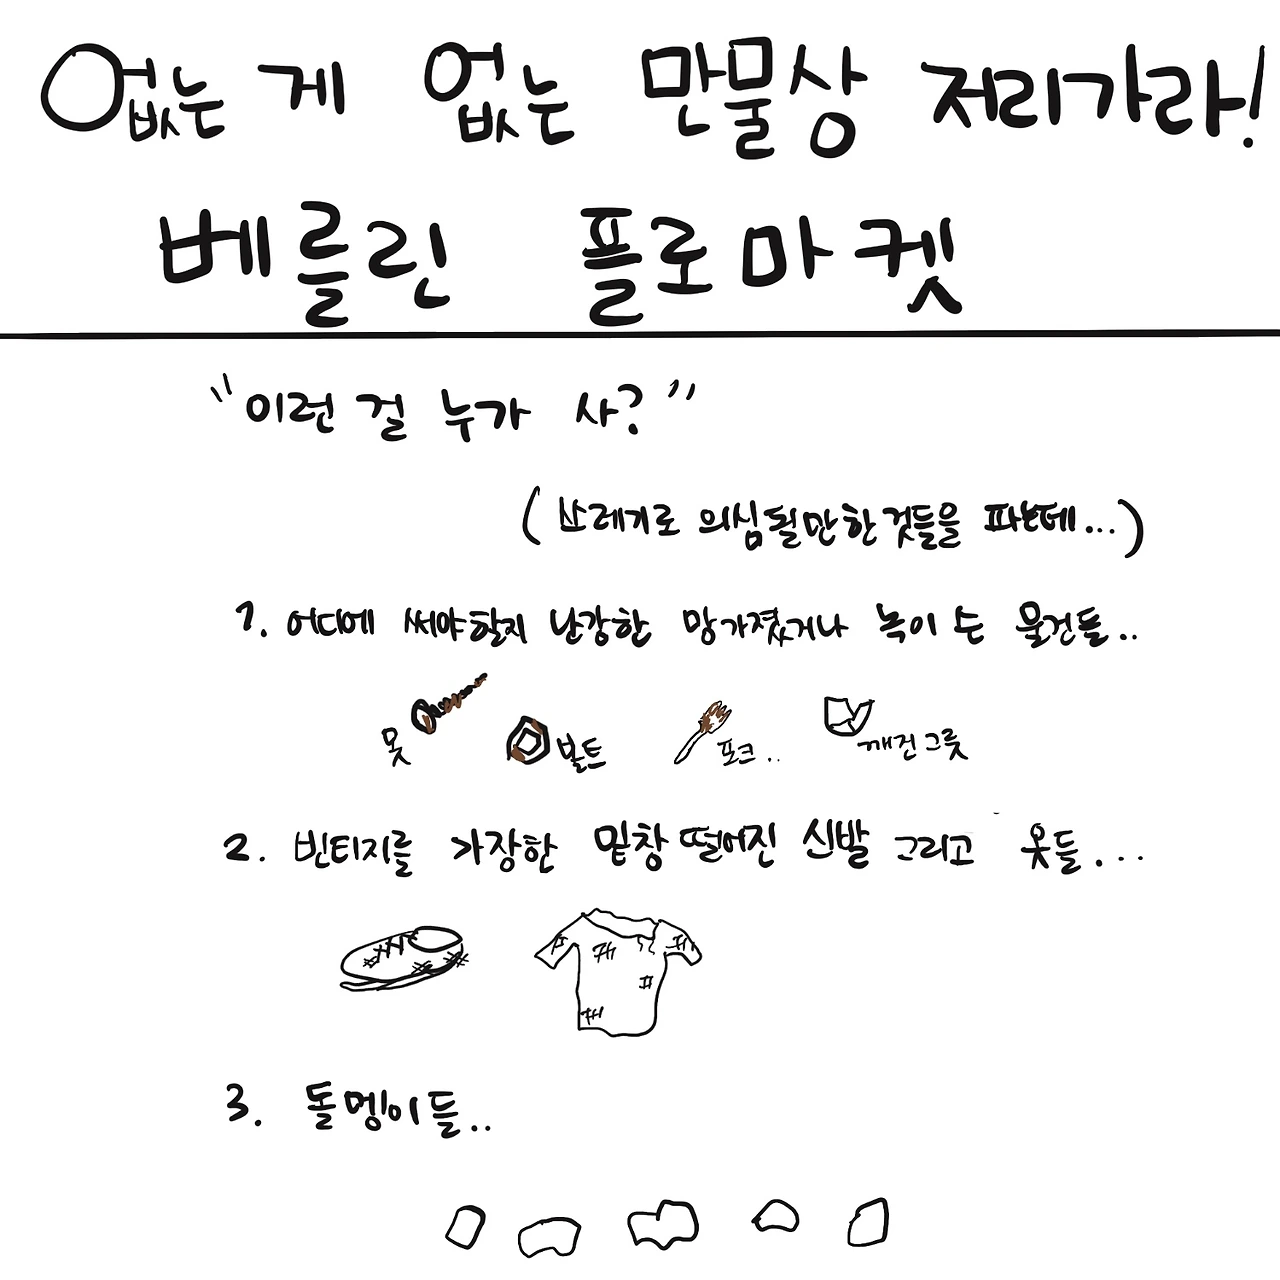 없는 게 없는 만물상 저리가라!
베를린 플로마켓
"이런 걸 누가 사?"
(쓰레기로 의심될만한것들을 파는데...)
1. 어디에 써야할지 난감한 망가졌거나 녹이 슨 물건들..
못 볼트 포크.. 깨진그릇
2. 빈티지를 가장한 밑창 떨어진 신발 그리고 옷들....
3. 돌멩이들..